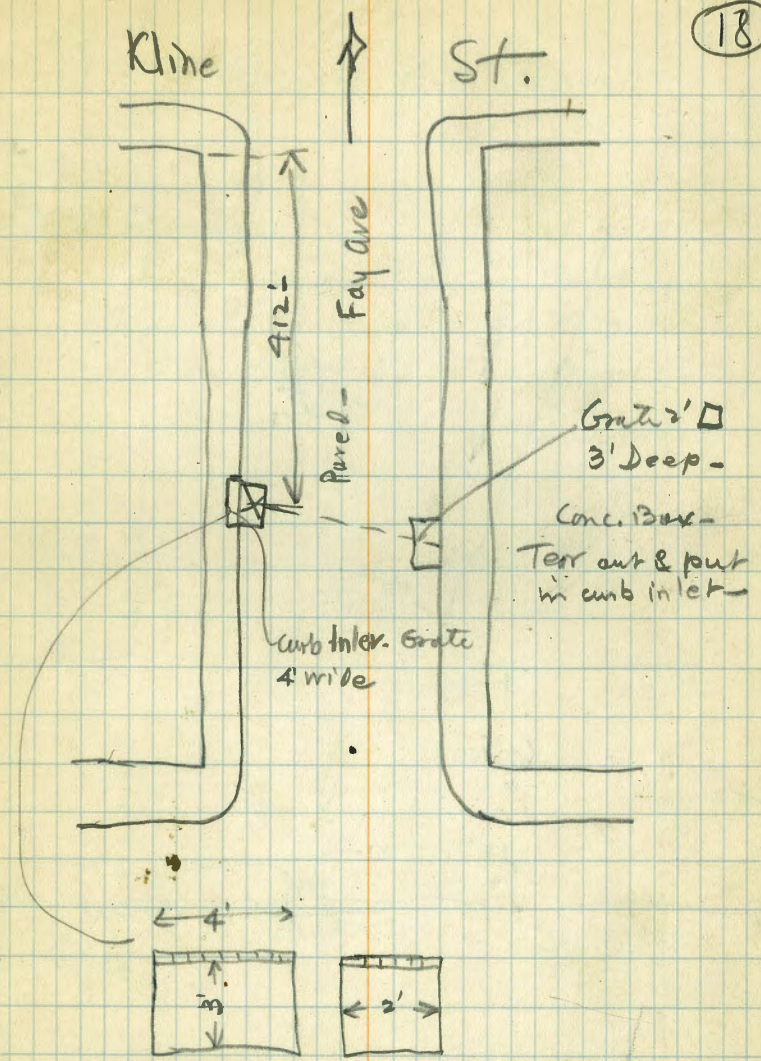 18
Kline St.
Fay Ave
412'-
Paved-
Grate 2' □
3' Deep-
Conc. Box-
Tear out & put
in curb inlet-
Curb Inlet. Grate
4' wide
4'
3'
2'